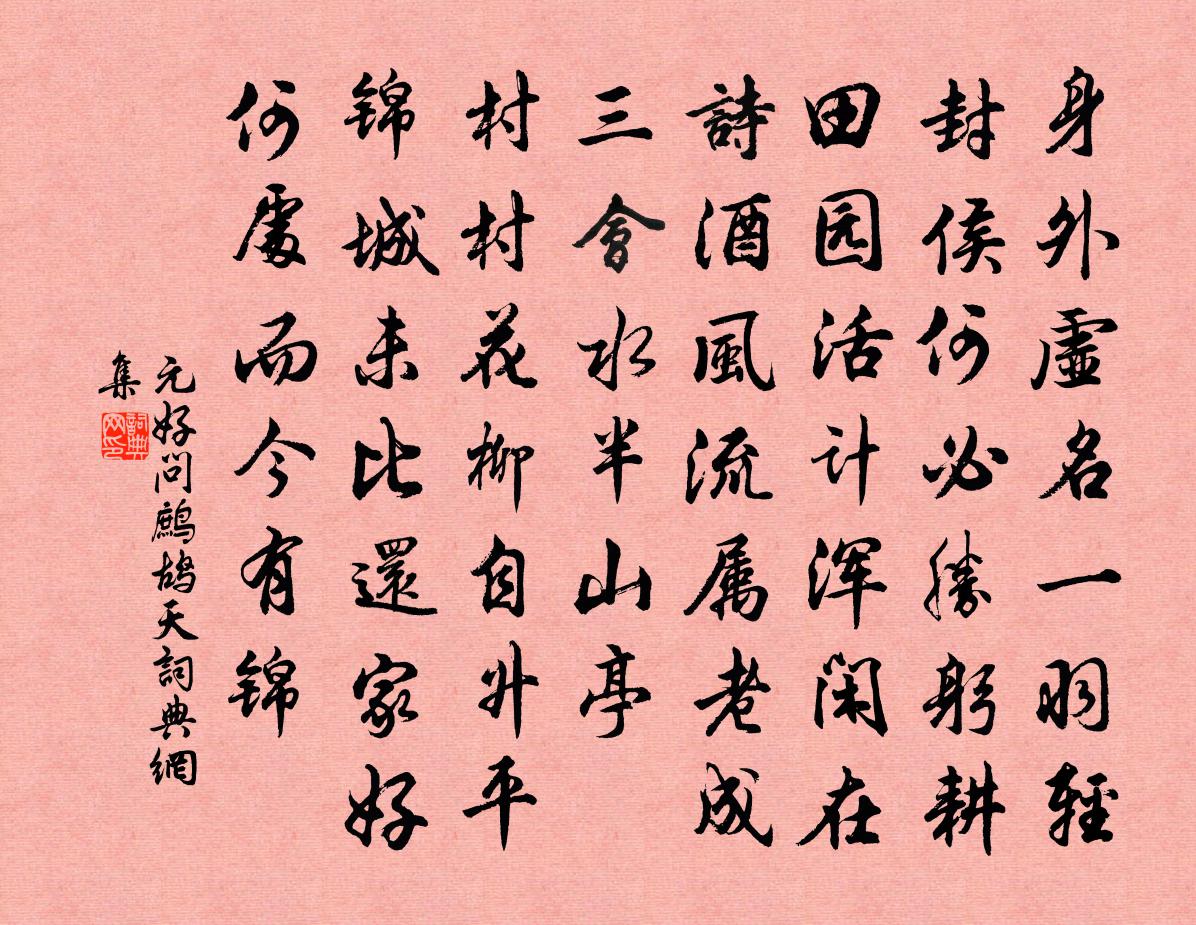 身外虛名一羽輕
封侯何必勝躬耕
田园活计浑闲在
詩酒風流属老成
三會水半山亭
村村花柳自升平
锦城未比還家好
何處而今有锦
元好問鷓鴣天詞典網
集
詞典
网印